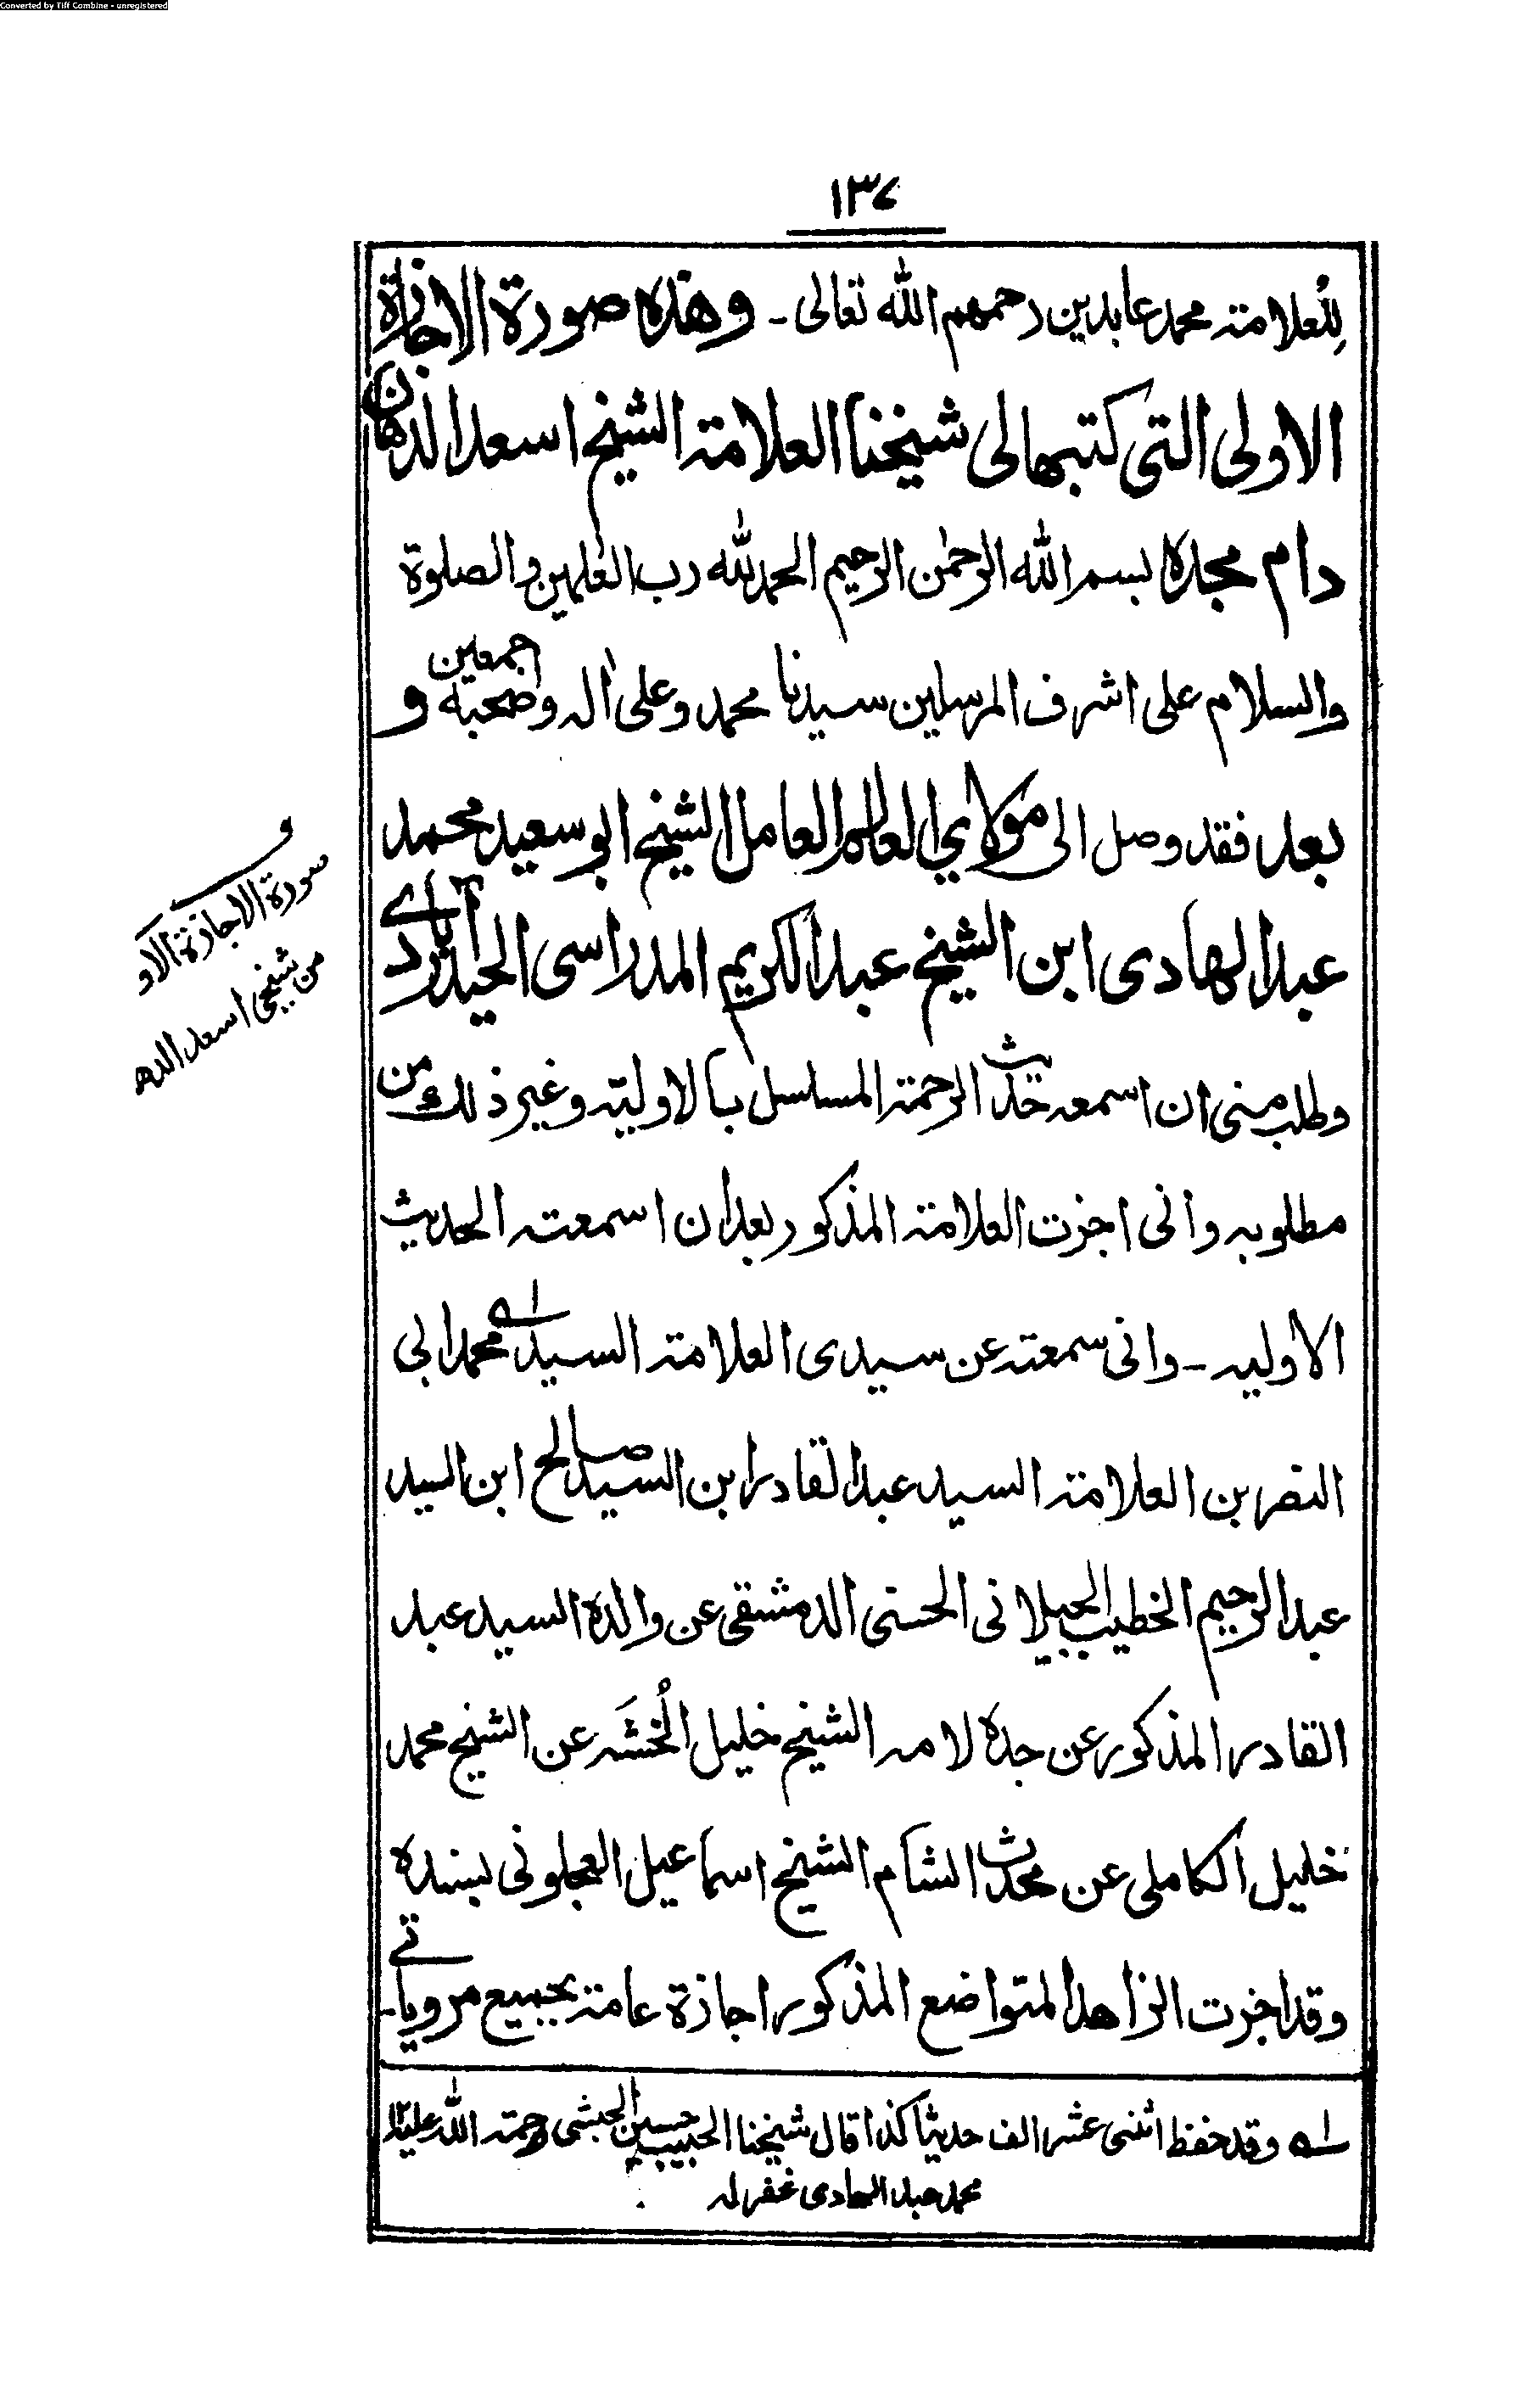 Converted by Tiff Combine - unregistered
١٣٧
للعلامة محمد عابدين رحمهم الله تعالى ـ وهذه صورة الاجازة
الاولى التى كتبها لى شيخنا العلامة الشيخ اسعد الدهان
دام مجده بسم الله الرحمٰن الرحيم الحمد لله رب العٰلمين والصلوة
والسلام على اشرف المرسلين سيدنا محمد وعلى اٰله وصحبه اجمعين و
بعد فقد وصل الى مولاي العالم العامل الشيخ ابو سعيد محمد
عبد الهادى ابن الشيخ عبد الكريم المدراسى الحيدرآبادے
وطلب منى ان اسمعه حديث الرحمة المسلسل بالاولية وغير ذلك من
مطلوبه وانى اجزت العلامة المذكور بعد ان اسمعته الحديث
الاوليه ـ وانى سمعته عن سيدى العلامة السيد لـه محمد ابى
النصر بن العلامة السيد عبد القادر ابن السيد صالح ابن السيد
عبد الرحيم الخطيب الجيلانى الحسنى الدمشقى عن والده السيد عبد
القادر المذكور عن جده لامه الشيخ خليل الخُشَه عن الشيخ محمد
خليل الكاملى عن محدث الشام الشيخ اسماعيل العجلونى بسنده
وقد اجزت الزاهد المتواضع المذكور اجازة عامة بجميع مروياتے
لـه وقد حفظ اثنى عشر الف حديثا كذا قال شيخنا الحبيب حسين الحبشى رحمة الله عليه ١٢
محمد عبد الهادى غفر له
و
سورة الاجازة الاو
من شيخى اسعد الده